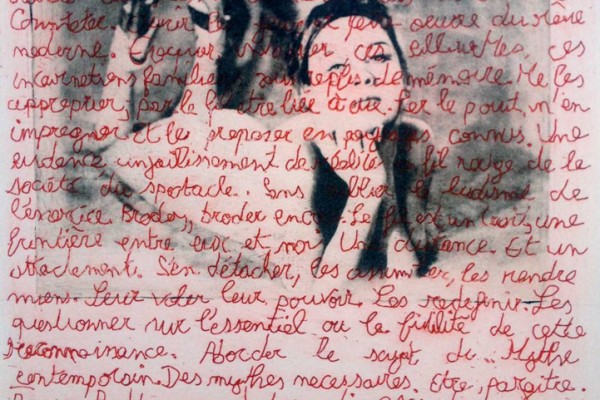 Contacter. Ouvrir les yeux et faire oeuvre du rêve
moderne. Croquer, ces ces
incarnations familières aux replis de mémoire. Me les
approprier, par le fil être liée à eux. Par le point, m'en
imprégner et les proposer en connus. Une
évidence un jaillissement de réalité le fil rouge de la
société du spectacle. Sans oublier le ludisme de
l'exercice. Broder, broder encore. Le fil est un trait, une
frontière entre eux et moi. Une distance. Et un
attachement. S'en détacher, les assimiler, les rendre
miens. Leur voler leur pouvoir. Les redéfinir. Les
questionner sur l'essentiel ou la fidélité de cette
reconnaissance. Aborder le sujet du Mythe
contemporain. Des mythes nécessaires. Etre, paraître.